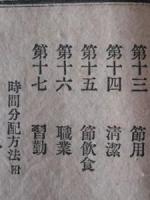 第十三　節用
第十四　清潔
第十五　節飲食
第十六　職業
第十七　習勤
時間分配方法附